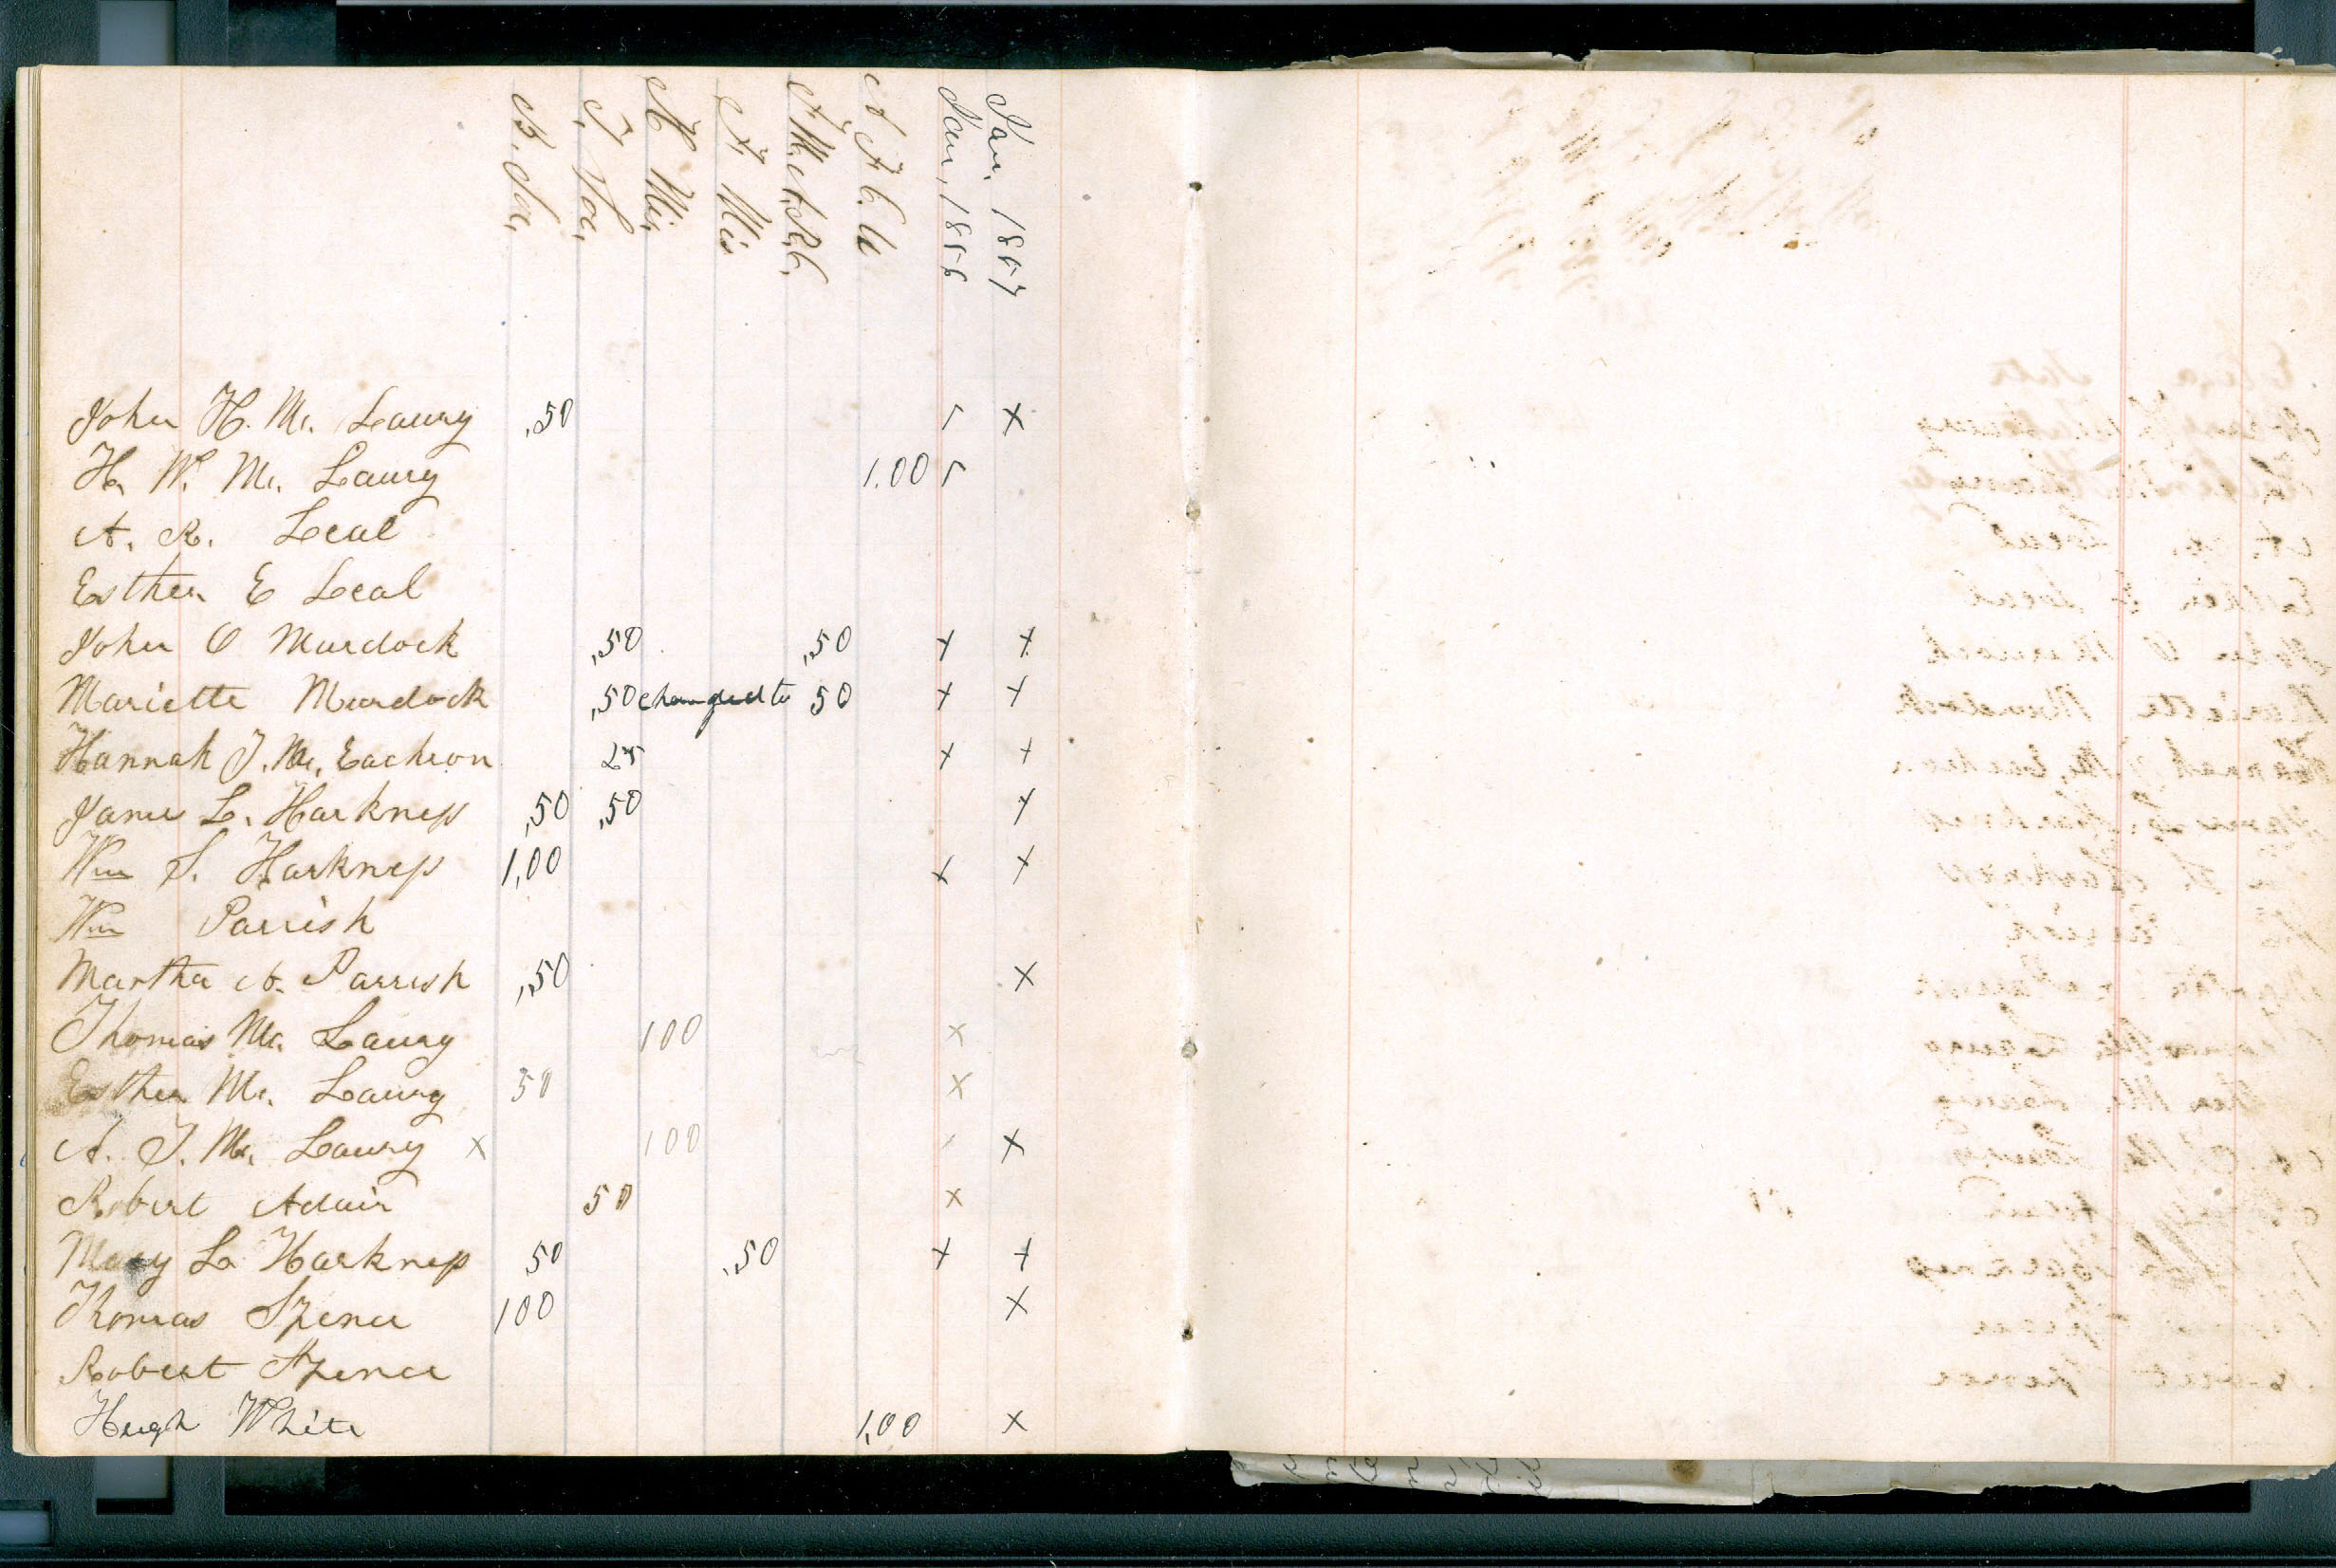 B. Soc.
T. Soc.
H Mis.
F. Mis
A F C U
Jan, 1856
Jan, 1857
John H. Mc. Laury ,50 x
H. W. Mc. Laury 1.00
A. R. Leal
Esther E Leal
John O Murdock ,50 ,50 x x
Mariette Murdock ,50 changed to 50 x x
Hannah J. Mc. Eachron 25 x x
James L. Harkness ,50 ,50 x
Wm S. Harkness 1,00 x x
Wm Parrish
Martha A. Parrish ,50 x
Thomas Mc. Laury 100 x
Esther Mc. Laury 50 x
A. J. Mc. Laury x 100 x x
Robert Adair 50 x
Mary L. Harkness 50 .50 x x
Thomas Spence 100 x
Robert Spence
Hugh White 1,00 x